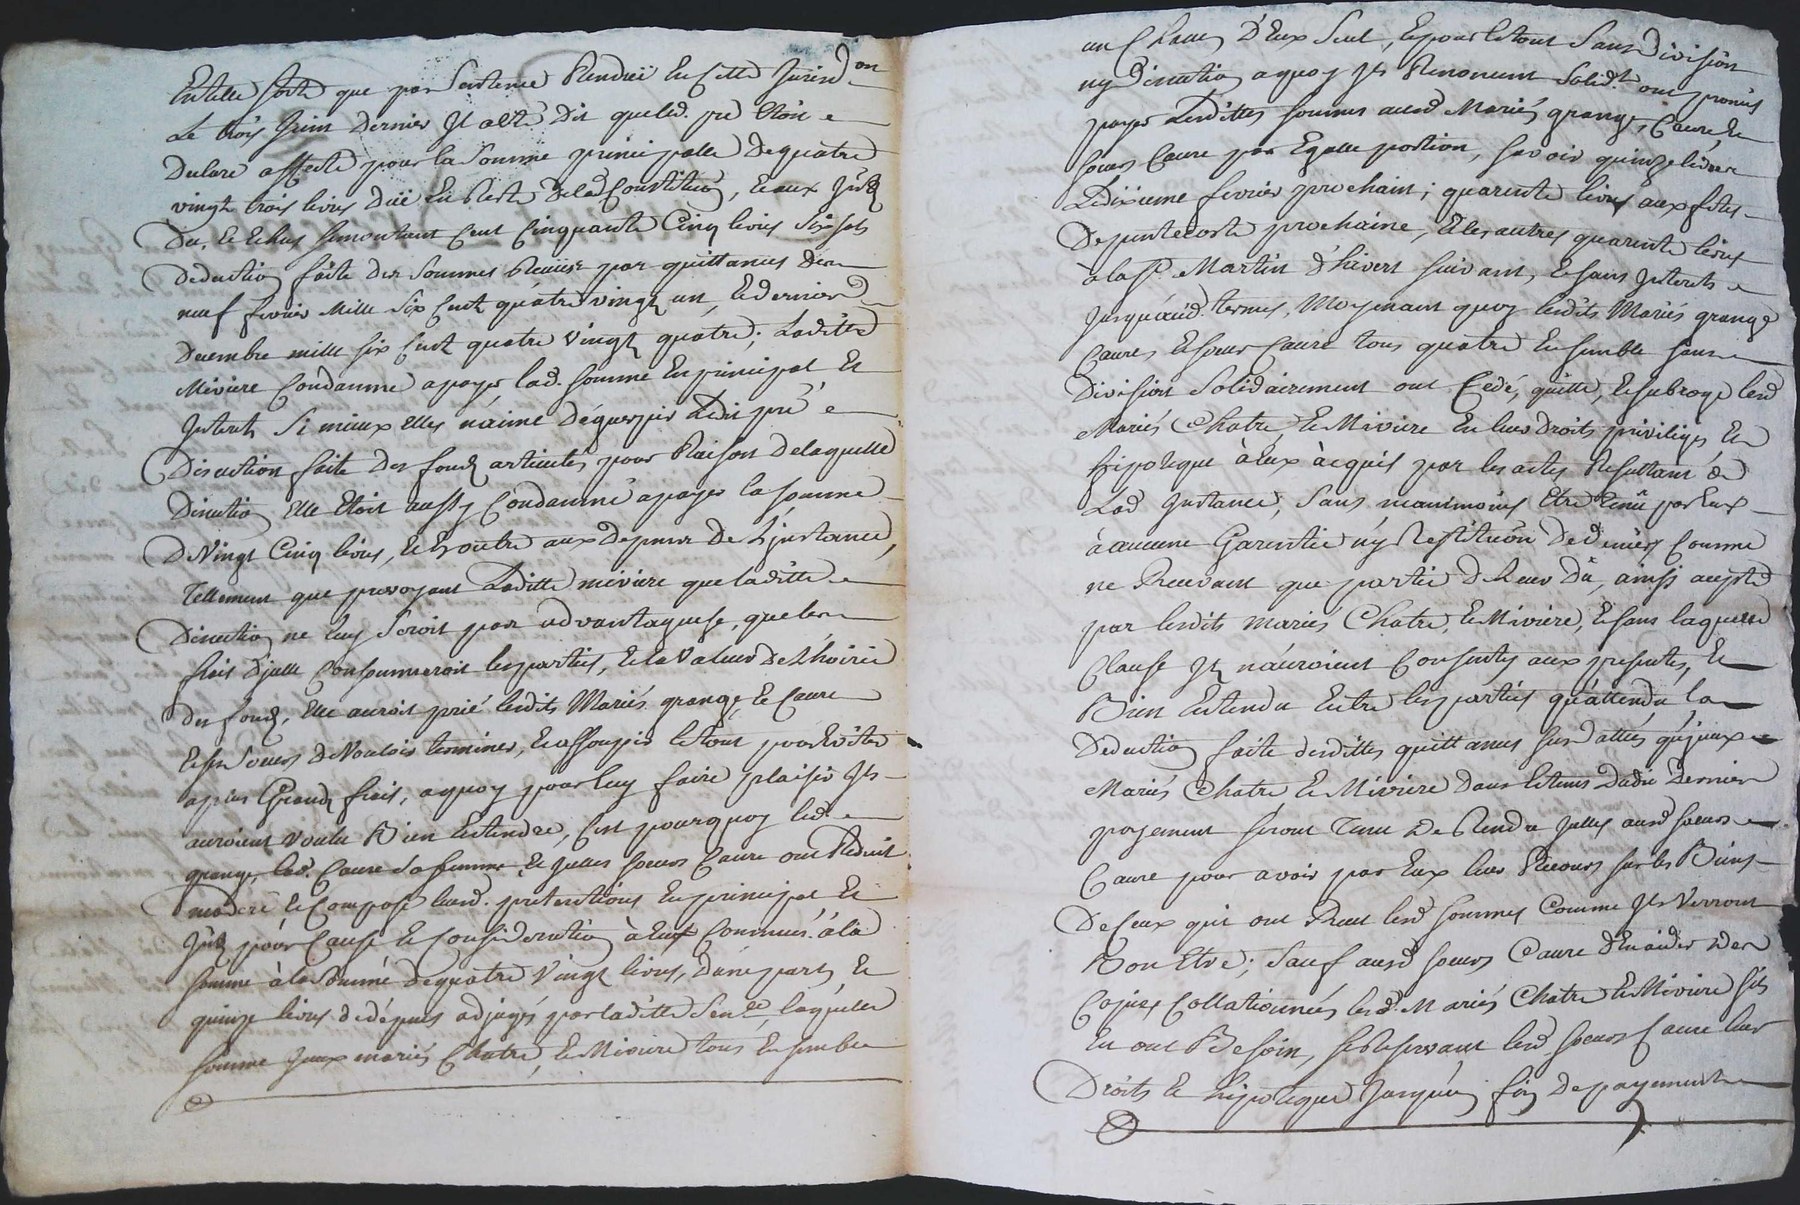 En telle sorte que par Sentence Rendüe En cette Jurisd.on
Le trois Juin dernier Il a été Dit que led. pré Etoit
Declare affecté pour la Somme principalle De quatre
vingt trois livres düe En Reste De lad Constitution, et aux
Du, et Echus Se montant Cent Cinquante Cinq livres Six sols
Deduction faite des Sommes Reçues par quittances des
neuf fevrier Mille Six Cent quatre vingt un, et dernier
Decembre mille six Cent quatre vingt quatre; Laditte
Miviere Condamné a payer lad. Somme En principal Et
Interets Si mieux Elle n'aime Déguerpir Ledit pré
Discution faite des fonds articulés, pour Raison De laquelle
Discution Elle Etoit aussy Condamné a payer la Somme
De Vingt Cinq livres, et En outre aux Depens De L'instance,
Tellement que prevoyant Laditte Miviere que laditte
Discution ne luy Seroit pas advantageuse, que les
frais d'jcelle Consommeroit les parties, et la Valeur De L'hoirie
des fonds, Elle auroit prié lesdits Mariés grange, et Caure
et Ses Soeurs De Vouloir terminer, et assoupir le tout pour Eviter
a plus Grands frais, a quoy pour luy faire plaisir Ils
auroient voulu Bien Entendre, C'est pourquoy led.
grange, lad. Caure Sa femme, Et jcelles Soeurs Caure ont Reduit
moderé et Composé leursd. pretentions En principal Et
pour Cause et Consideration à Eux Connües à la
Somme à la Somme De quatre Vingt livres, D'une part, Et
quinze livres de dépens adjugés par laditte Sen.ce, laquelle
Somme jceux mariés Chatre, et Miviere tous Ensemble
un Chacun D'Eux Seul, et pour le tout Sans Division
ny Discution a quoy Ils Renoncent Solid.t ont promis
payer Lesdittes Sommes ausd Mariés grange, Caure et
Soeurs Caure par Egalle portion, Savoir quinze livres
Le dixieme fevrier prochain; quarente livres aux fêtes
De pentecoste prochaine, Et les autres quarente livres
à la St. Martin d'hivert Suivant, et Sans Interets
Jusqu'aüd. termes, Moyenant quoy lesdits Mariés grange
Caures, et Soeurs Caure tous quatre Ensemble Sans
Division Solidairement ont Cedé, quitte, et Subrogé lesd
Mariés Chatre, et Miviere En leurs droits priviliges, Et
hippoteque à Eux acquis par les actes Resultant de
Lad Instance, Sans neantmoins Etre tenû par Eux
à aucune Garentie ny Restitution De deniers Comme
ne Recevant que partie De leur Dû, ainsy accepté
par lesdits mariés Chatre, et Miviere, et Sans laquelle
Clause Ils n'auroient Consentys aux presentes, Et
Bien Entendu Entre les parties qu'attendu la
Deduction faite desdittes quittances Susdattés qu'jceux
Mariés Chatre et Miviere Dans le tems Dudit Dernier
payement Seront Tenu De Rendre Jcelles ausd Soeurs
Caure pour avoir par Eux leur Recours Sur les Biens
De Ceux qui ont Reçut lesd Sommes Comme Ils Verront
Bon Etre; Sauf ausd Soeurs Caure d'En aider Des
Copies Collationnées lesd. Mariés Chatre et Miviere S'ils
En ont Besoin, Se Reservant lesd Soeurs Caure leur
Droits et hipoteque Jusqu'au fin De payement